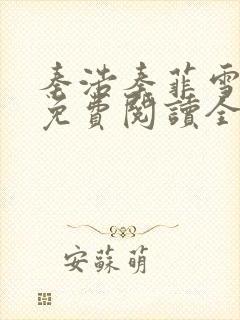 秦浩秦菲雪
免費閱讀全
安蘇萌